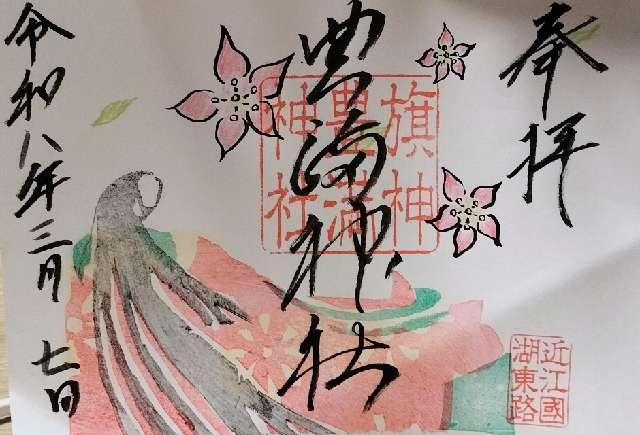 奉拝
豊満神社
旗神
豊満
神社
近江國
湖東路
令和八年三月七日